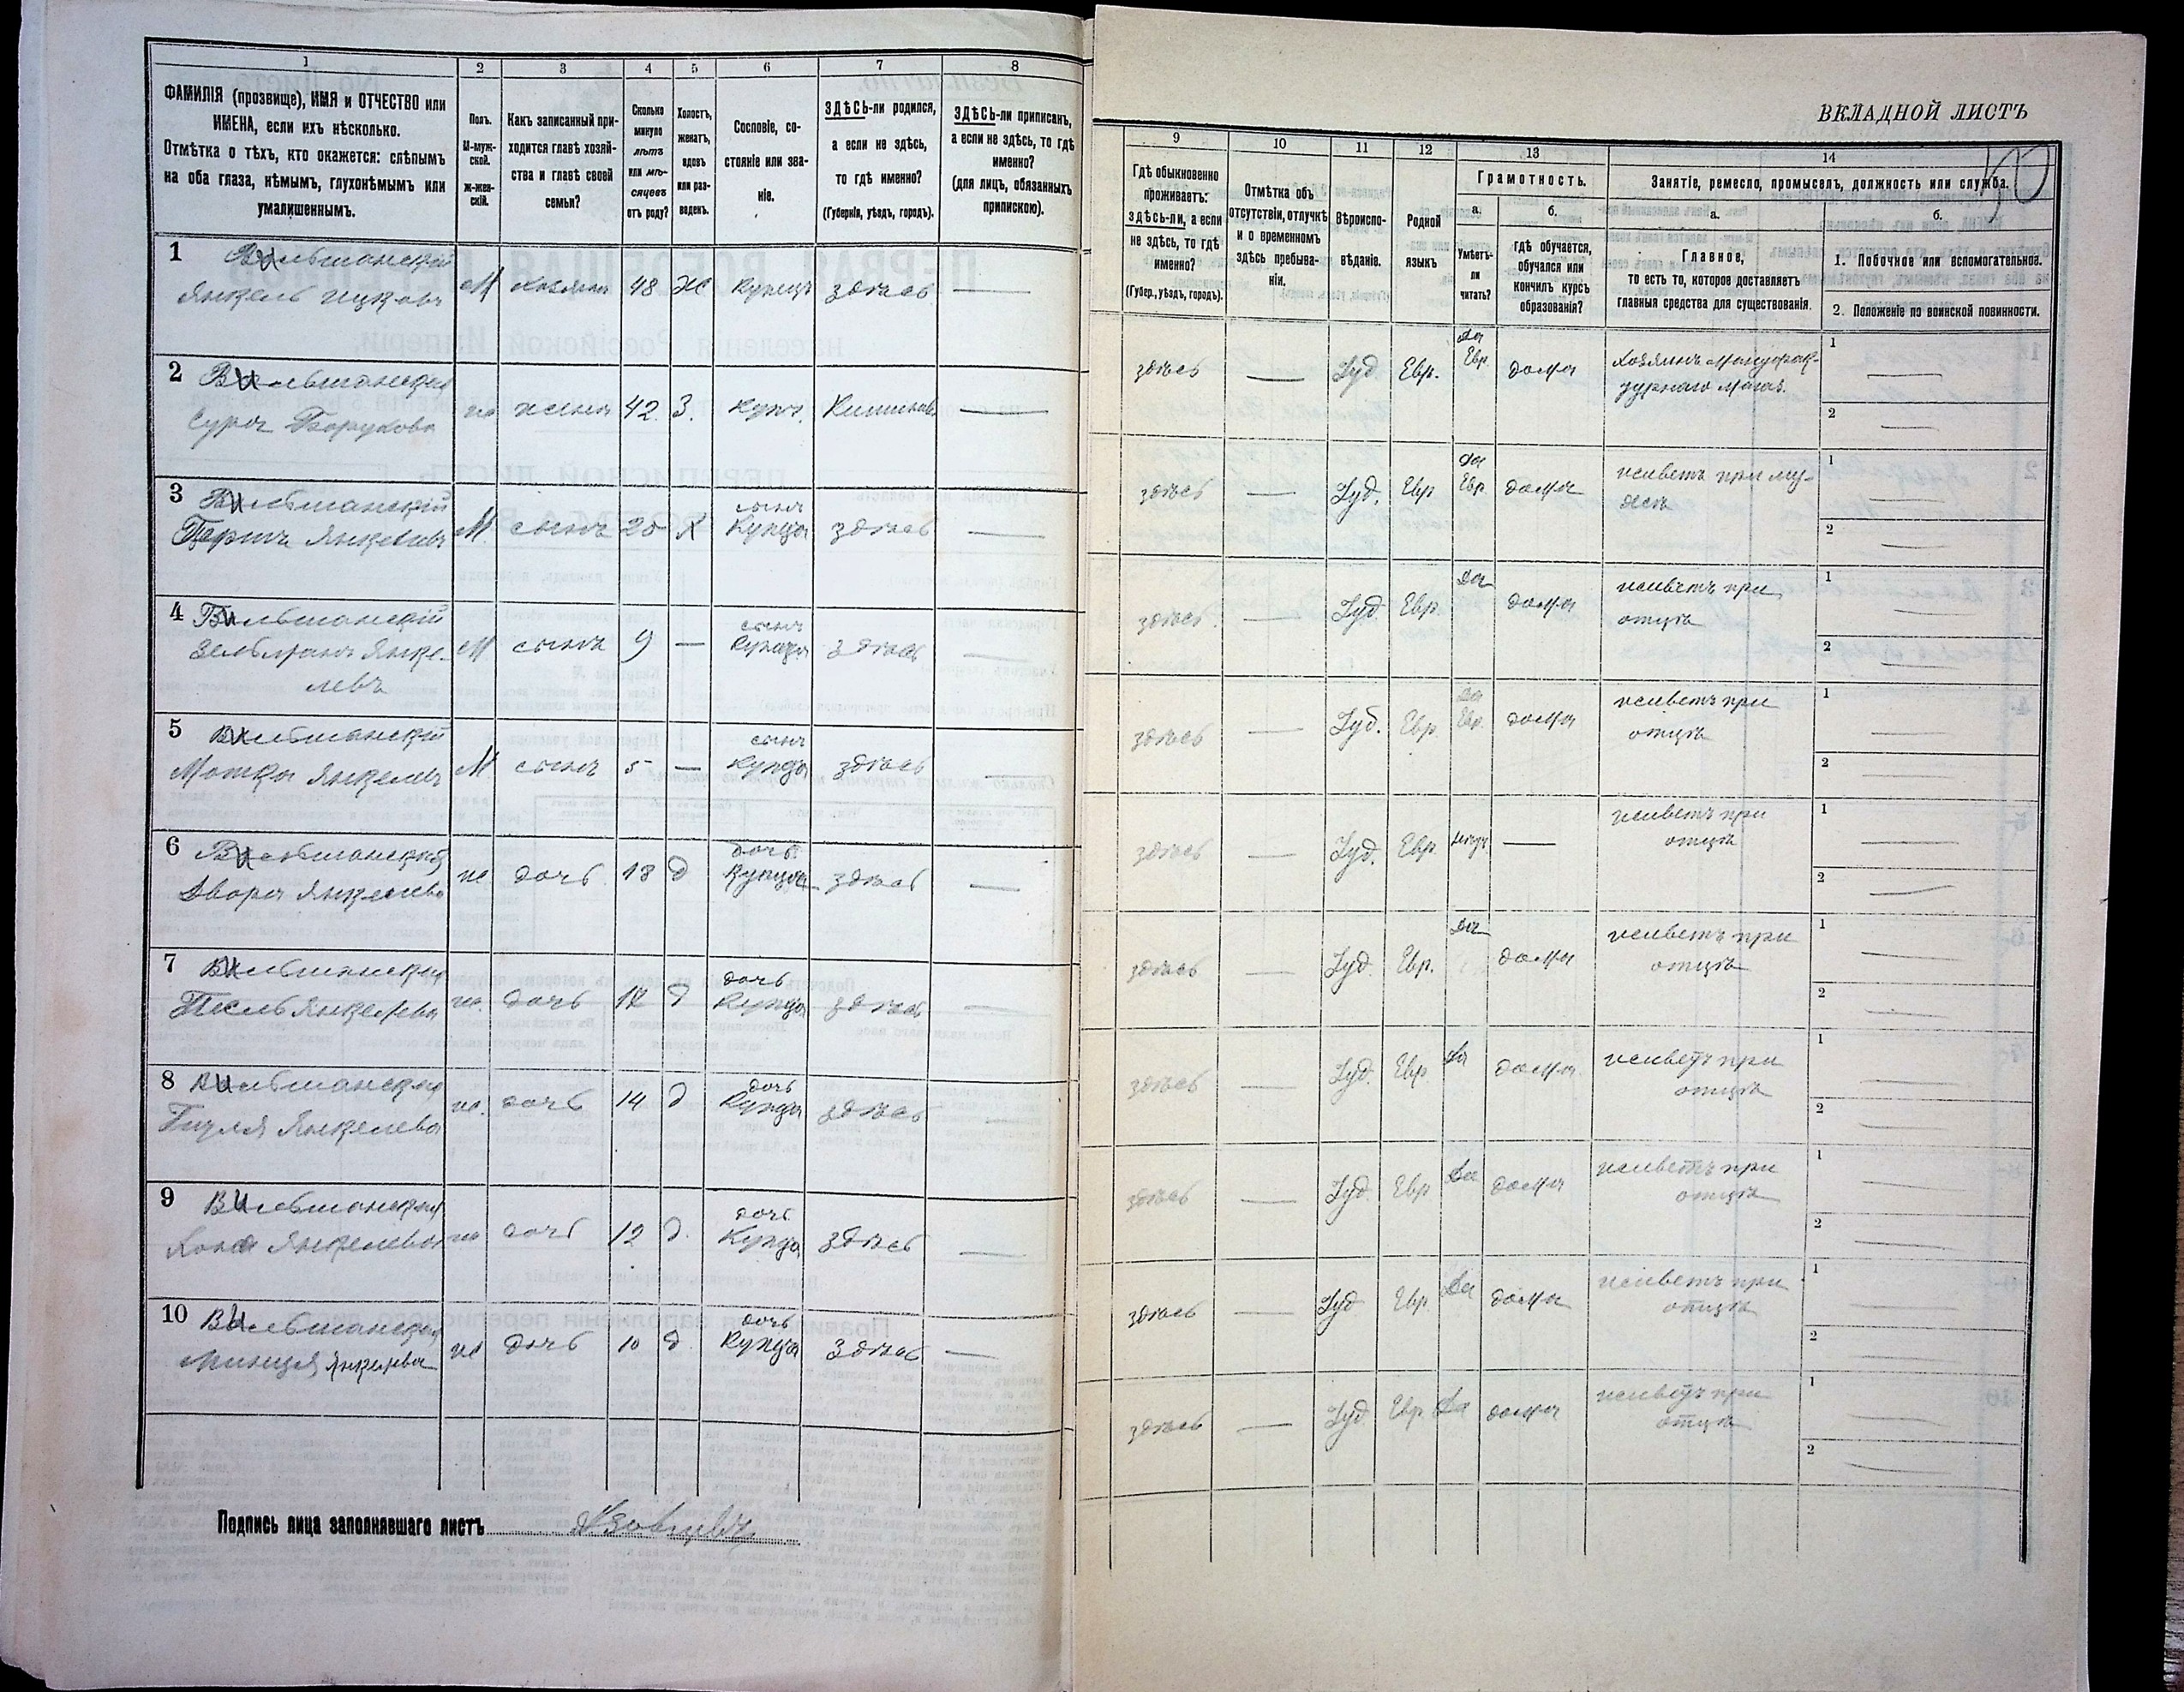 1 2 3 4 5 6 7 8
ФАМИЛІЯ (прозвище), ИМЯ и ОТЧЕСТВО или
ИМЕНА, если ихъ нѣсколько.
Отмѣтка о тѣхъ, кто окажется: слѣпымъ
на оба глаза, нѣмымъ, глухонѣмымъ или
умалишеннымъ.
Полъ.
М-муж-
ской.
Ж-жен-
скій.
Какъ записанный при-
ходится главѣ хозяй-
ства и главѣ своей
семьи?
Сколько
минуло
лѣтъ
или мѣ-
сяцевъ
отъ роду?
Холостъ,
женатъ,
вдовъ
или раз-
веденъ.
Сословіе, со-
стояніе или зва-
ніе.
ЗДѢСЬ-ли родился,
а если не здѣсь,
то гдѣ именно?
(Губернія, уѣздъ, городъ).
ЗДѢСЬ-ли приписанъ,
а если не здѣсь, то гдѣ
именно?
(для лицъ, обязанныхъ
припискою).
1 Вильшанскій
Янкель Ицковъ М Хозяинъ 48 Ж Купецъ здѣсь —
2 Вильшанская
Сура Борухова ж жена 42 З. Купч. Кишиневъ —
3 Вильшанскій сынъ
Янкелевъ М сынъ 20 Х Купца здѣсь —
4 Вильшанскій сынъ
Зельманъ Янке- М сынъ 9 — Купца здѣсь —
левъ
5 Вильшанскій сынъ
Мотка Янкелевъ М сынъ 5 — Купца здѣсь —
6 Вильшанская дочь
Двора Янкелева ж дочь 18 д Купца здѣсь —
7 Вильшанская дочь
Янкелева ж. дочь д Купца здѣсь —
8 Вильшанская дочь
Янкелева ж. дочь 14 д Купца здѣсь —
9 Вильшанская дочь
Янкелева ж дочь 12 д. Купца здѣсь —
10 Вильшанская дочь
Янкелева ж дочь 10 д Купца здѣсь —
Подпись лица заполнявшаго листъ
ВКЛАДНОЙ ЛИСТЪ
50
9 10 11 12 13 14
Гдѣ обыкновенно
проживаетъ:
здѣсь-ли, а если
не здѣсь, то гдѣ
именно?
(Губер., уѣздъ, городъ).
Отмѣтка объ
отсутствіи, отлучкѣ
и о временномъ
здѣсь пребыва-
ніи.
Вѣроиспо-
вѣданіе.
Родной
языкъ
Грамотность.
а. б.
Умѣетъ-
ли
читать?
гдѣ обучается,
обучался или
кончилъ курсъ
образованія?
Занятіе, ремесло, промыселъ, должность или служба.
а. б.
Главное,
то есть то, которое доставляетъ
главныя средства для существованія.
1. Побочное или вспомогательное.
2. Положеніе по воинской повинности.
Да 1
здѣсь — Іуд. Евр. Евр. дома Хозяинъ мануфак-
турнаго магаз. —
2 —
Да 1
здѣсь — Іуд. Евр Евр. дома живетъ при му-
жѣ —
2 —
здѣсь — Іуд. Евр. Да дома живетъ при 1 —
отцѣ 2 —
Да
здѣсь — Іуд. Евр Евр. дома живетъ при 1 —
отцѣ 2 —
здѣсь — Іуд. Евр — живетъ при 1 —
отцѣ 2 —
здѣсь — Іуд. Евр. Да дома живетъ при 1 —
отцѣ 2 —
здѣсь — Іуд. Евр Да дома живетъ при 1 —
отцѣ 2 —
здѣсь — Іуд. Евр Да дома живетъ при 1 —
отцѣ 2 —
здѣсь — Іуд Евр. Да дома живетъ при 1 —
отцѣ 2 —
здѣсь — Іуд Евр Да дома живетъ при 1 —
отцѣ 2 —